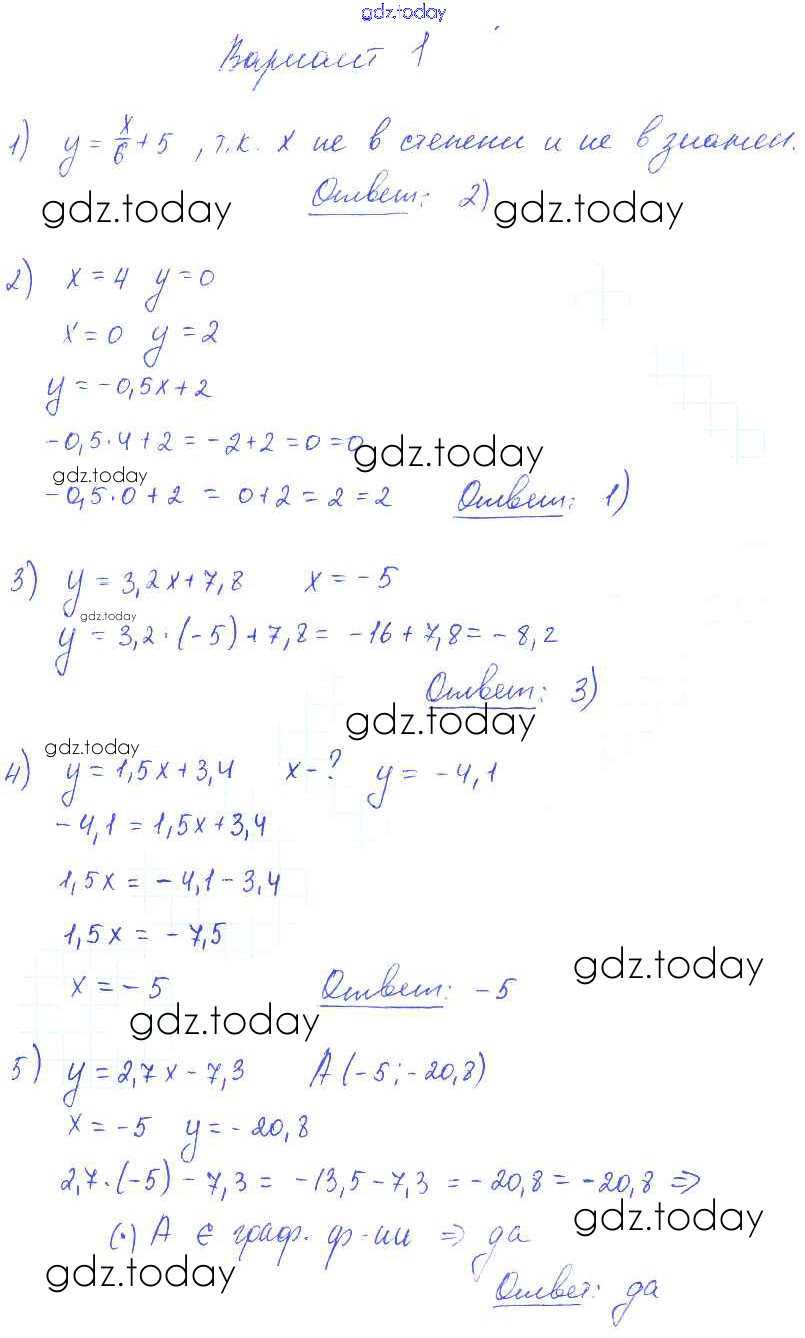 gdz.today
Вариант 1
1) y = x/6 + 5 , т.к. x не в степени и не в знамен.
Ответ: 2)
gdz.today gdz.today
2) x = 4 y = 0
x = 0 y = 2
y = -0,5x + 2
-0,5·4 + 2 = -2 + 2 = 0 = 0
gdz.today
gdz.today
-0,5·0 + 2 = 0 + 2 = 2 = 2 Ответ: 1)
3) y = 3,2x + 7,8 x = -5
gdz.today
y = 3,2·(-5) + 7,8 = -16 + 7,8 = -8,2
Ответ: 3)
gdz.today
gdz.today
4) y = 1,5x + 3,4 x - ? y = -4,1
-4,1 = 1,5x + 3,4
1,5x = -4,1 - 3,4
1,5x = -7,5
gdz.today
x = -5 Ответ: -5
gdz.today
5) y = 2,7x - 7,3 A (-5; -20,8)
x = -5 y = -20,8
2,7·(-5) - 7,3 = -13,5 - 7,3 = -20,8 = -20,8 ⇒
gdz.today
(·) A ∈ граф. ф-ии ⇒ да
gdz.today
Ответ: да